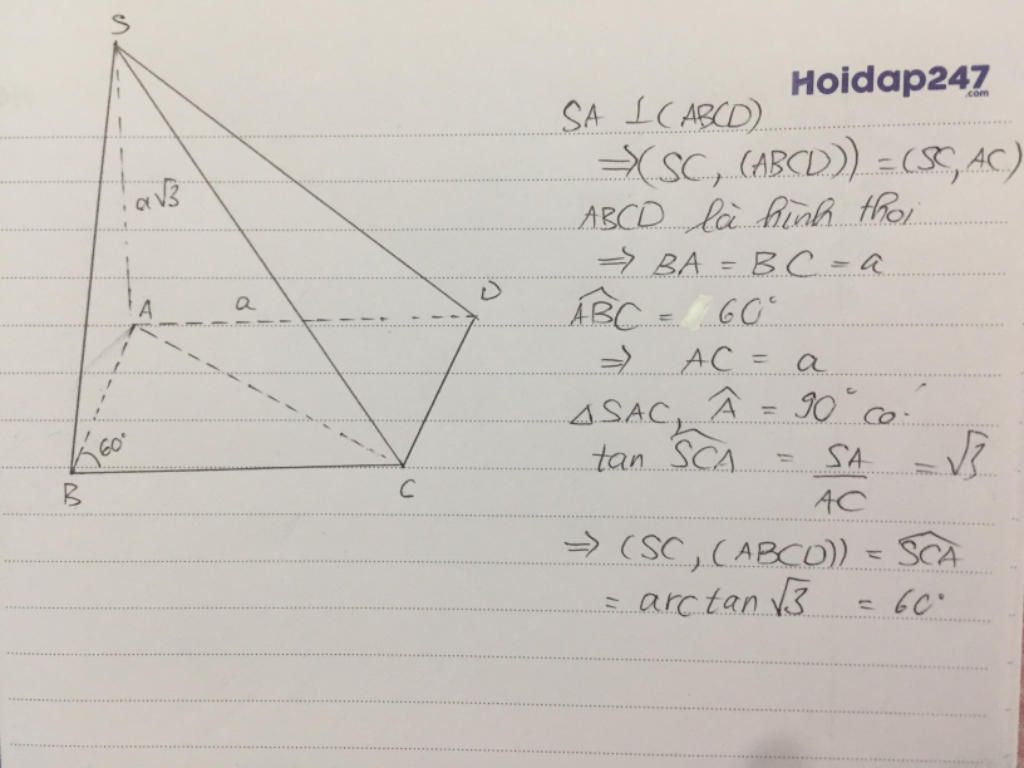 S
a√3
A
a
D
60°
B
C
Hoidap247
.com
SA ⊥ (ABCD)
⇒ (SC, (ABCD)) = (SC, AC)
ABCD là hình thoi
⇒ BA = BC = a
ABC = 60°
⇒ AC = a
△SAC, Â = 90° có
tan SCA = SA/AC = √3
⇒ (SC, (ABCD)) = SCA
= arctan √3 = 60°